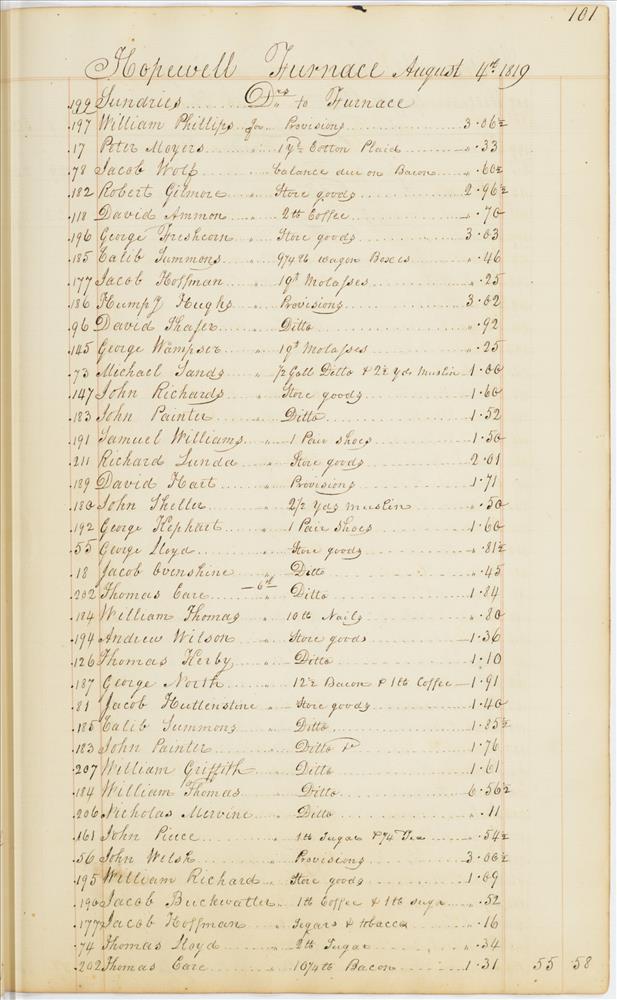 101
Hopewell Furnace August 4th 1819
199 Sundries Drs to Furnace
197 William Phillips for Provisions 3.06½
17 Peter Moyers " 1 yd Cotton Plaid .33
78 Jacob Wolf balance due on Bacon .60½
182 Robert Gilmore " Store goods 2.96½
118 David Ammon " 2 lb Coffee .70
196 George Freshcorn " Store goods 3.03
185 Calib Summons " 9¾ lb wagon Boxes .46
177 Jacob Hoffman " 1 qt Molasses .25
186 Humpy Hughs " Provisions 3.02
96 David Shafer " Ditto .92
145 George Wampser " 1 qt Molasses .25
73 Michael Sands " ½ Gall Ditto & 2½ yds Muslin 1.00
147 John Richards " Store goods 1.60
183 John Painter " Ditto 1.52
191 Samuel Williams " 1 Pair Shoes 1.50
211 Richard Lunda " Store goods 2.01
189 David Hart " Provisions 1.71
180 John Sheller " 2½ Yds muslin .50
192 George Hephart " 1 Pair Shoes 1.60
55 George Lloyd " Store goods .81½
18 Jacob Ovenshine " Ditto .45
6th
202 Thomas Care " Ditto 1.84
184 William Thomas " 10 lb Nails .80
194 Andrew Wilson " Store goods 1.36
126 Thomas Kerby " Ditto 1.10
187 George North " 12½ Bacon & 1 lb Coffee 1.91
81 Jacob Huttenstine " Store goods 1.40
185 Calib Summons " Ditto 1.85½
183 John Painter " Ditto 1.76
207 William Griffith " Ditto 1.61
184 William Thomas " Ditto 6.56½
206 Nicholas Mervine " Ditto .11
161 John Piece " 1 lb Sugar & ¼ Tea .54½
56 John Welsh " Provisions 3.00½
195 William Richard " Store goods 1.09
190 Jacob Buckwatter " 1 lb Coffee & 1 lb Sugr .52
177 Jacob Hoffman " Segars & tobacco .16
74 Thomas Lloyd " 2 lb Sugar .34
202 Thomas Care " 10¼ lb Bacon 1.31 55 58